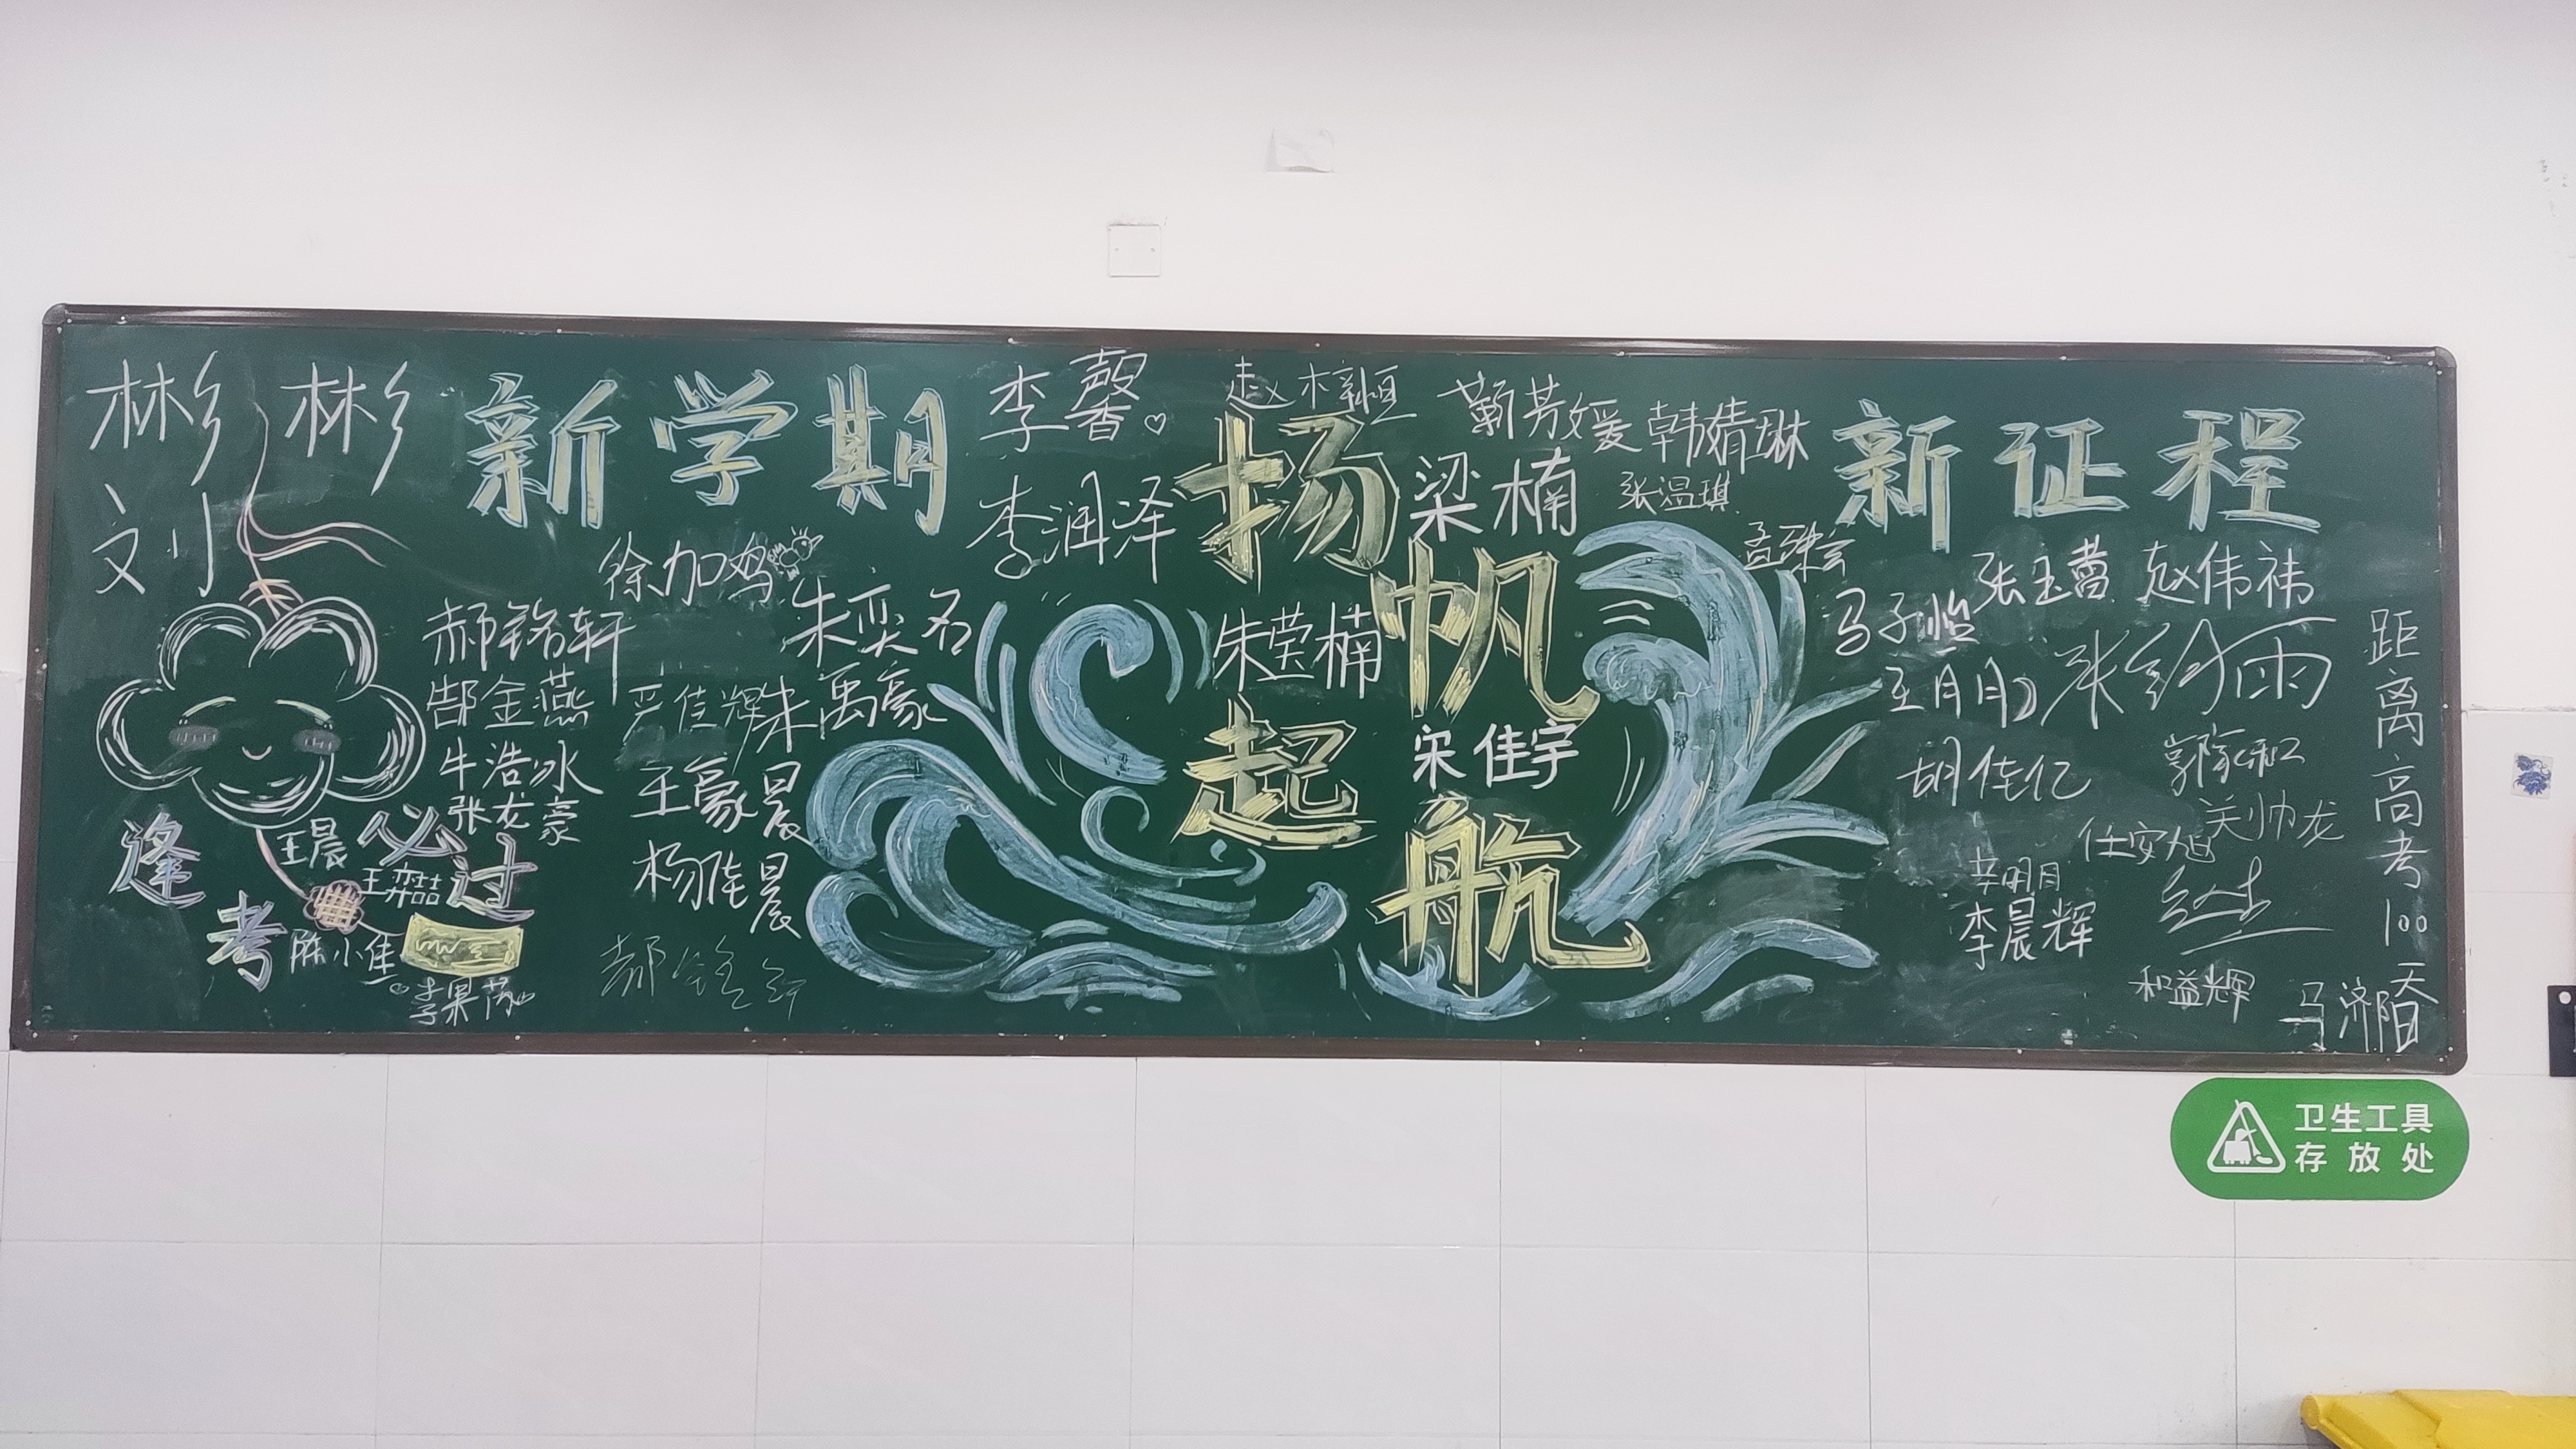 彬彬
刘
新学期
李馨
李润泽
扬帆起航
靳芳媛
韩婧琳
梁楠
张温琪
新征程
徐加鸡
朱奕名
郝铭轩
郜金燕
牛浩冰
张龙豪
严佳辉
朱禹豪
王豪晨
杨佳晨
朱莹楠
宋佳宇
马子怡
张玉蕾
赵伟祎
王月月
胡佳亿
任安旭
关帅龙
辛明月
李晨辉
和益辉
马济阳
距离高考100天
逢考必过
王晨
王奕喆
陈小隹
卫生工具
存放处